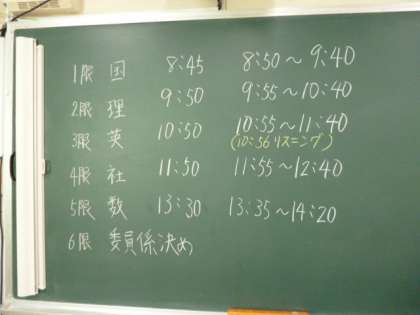 1限 国 8:45 8:50～9:40
2限 理 9:50 9:55～10:40
3限 英 10:50 10:55～11:40
(10:56リスニング)
4限 社 11:50 11:55～12:40
5限 数 13:30 13:35～14:20
6限 委員係決め